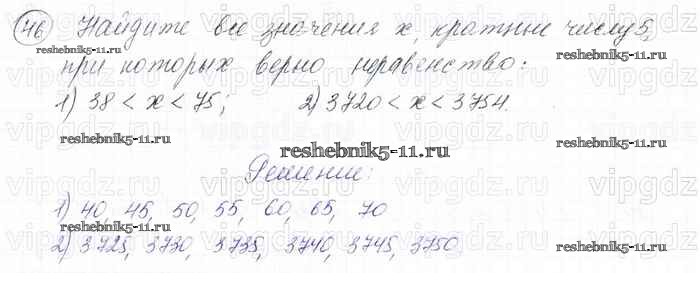 46 Найдите все значения х, кратные числу 5,
reshebnik5-11.ru
при которых верно неравенство:
1) 38 < x < 75; 2) 3720 < x < 3754.
reshebnik5-11.ru
reshebnik5-11.ru
reshebnik5-11.ru
Решение:
1) 40, 45, 50, 55, 60, 65, 70
reshebnik5-11.ru
reshebnik5-11.ru
2) 3725, 3730, 3735, 3740, 3745, 3750